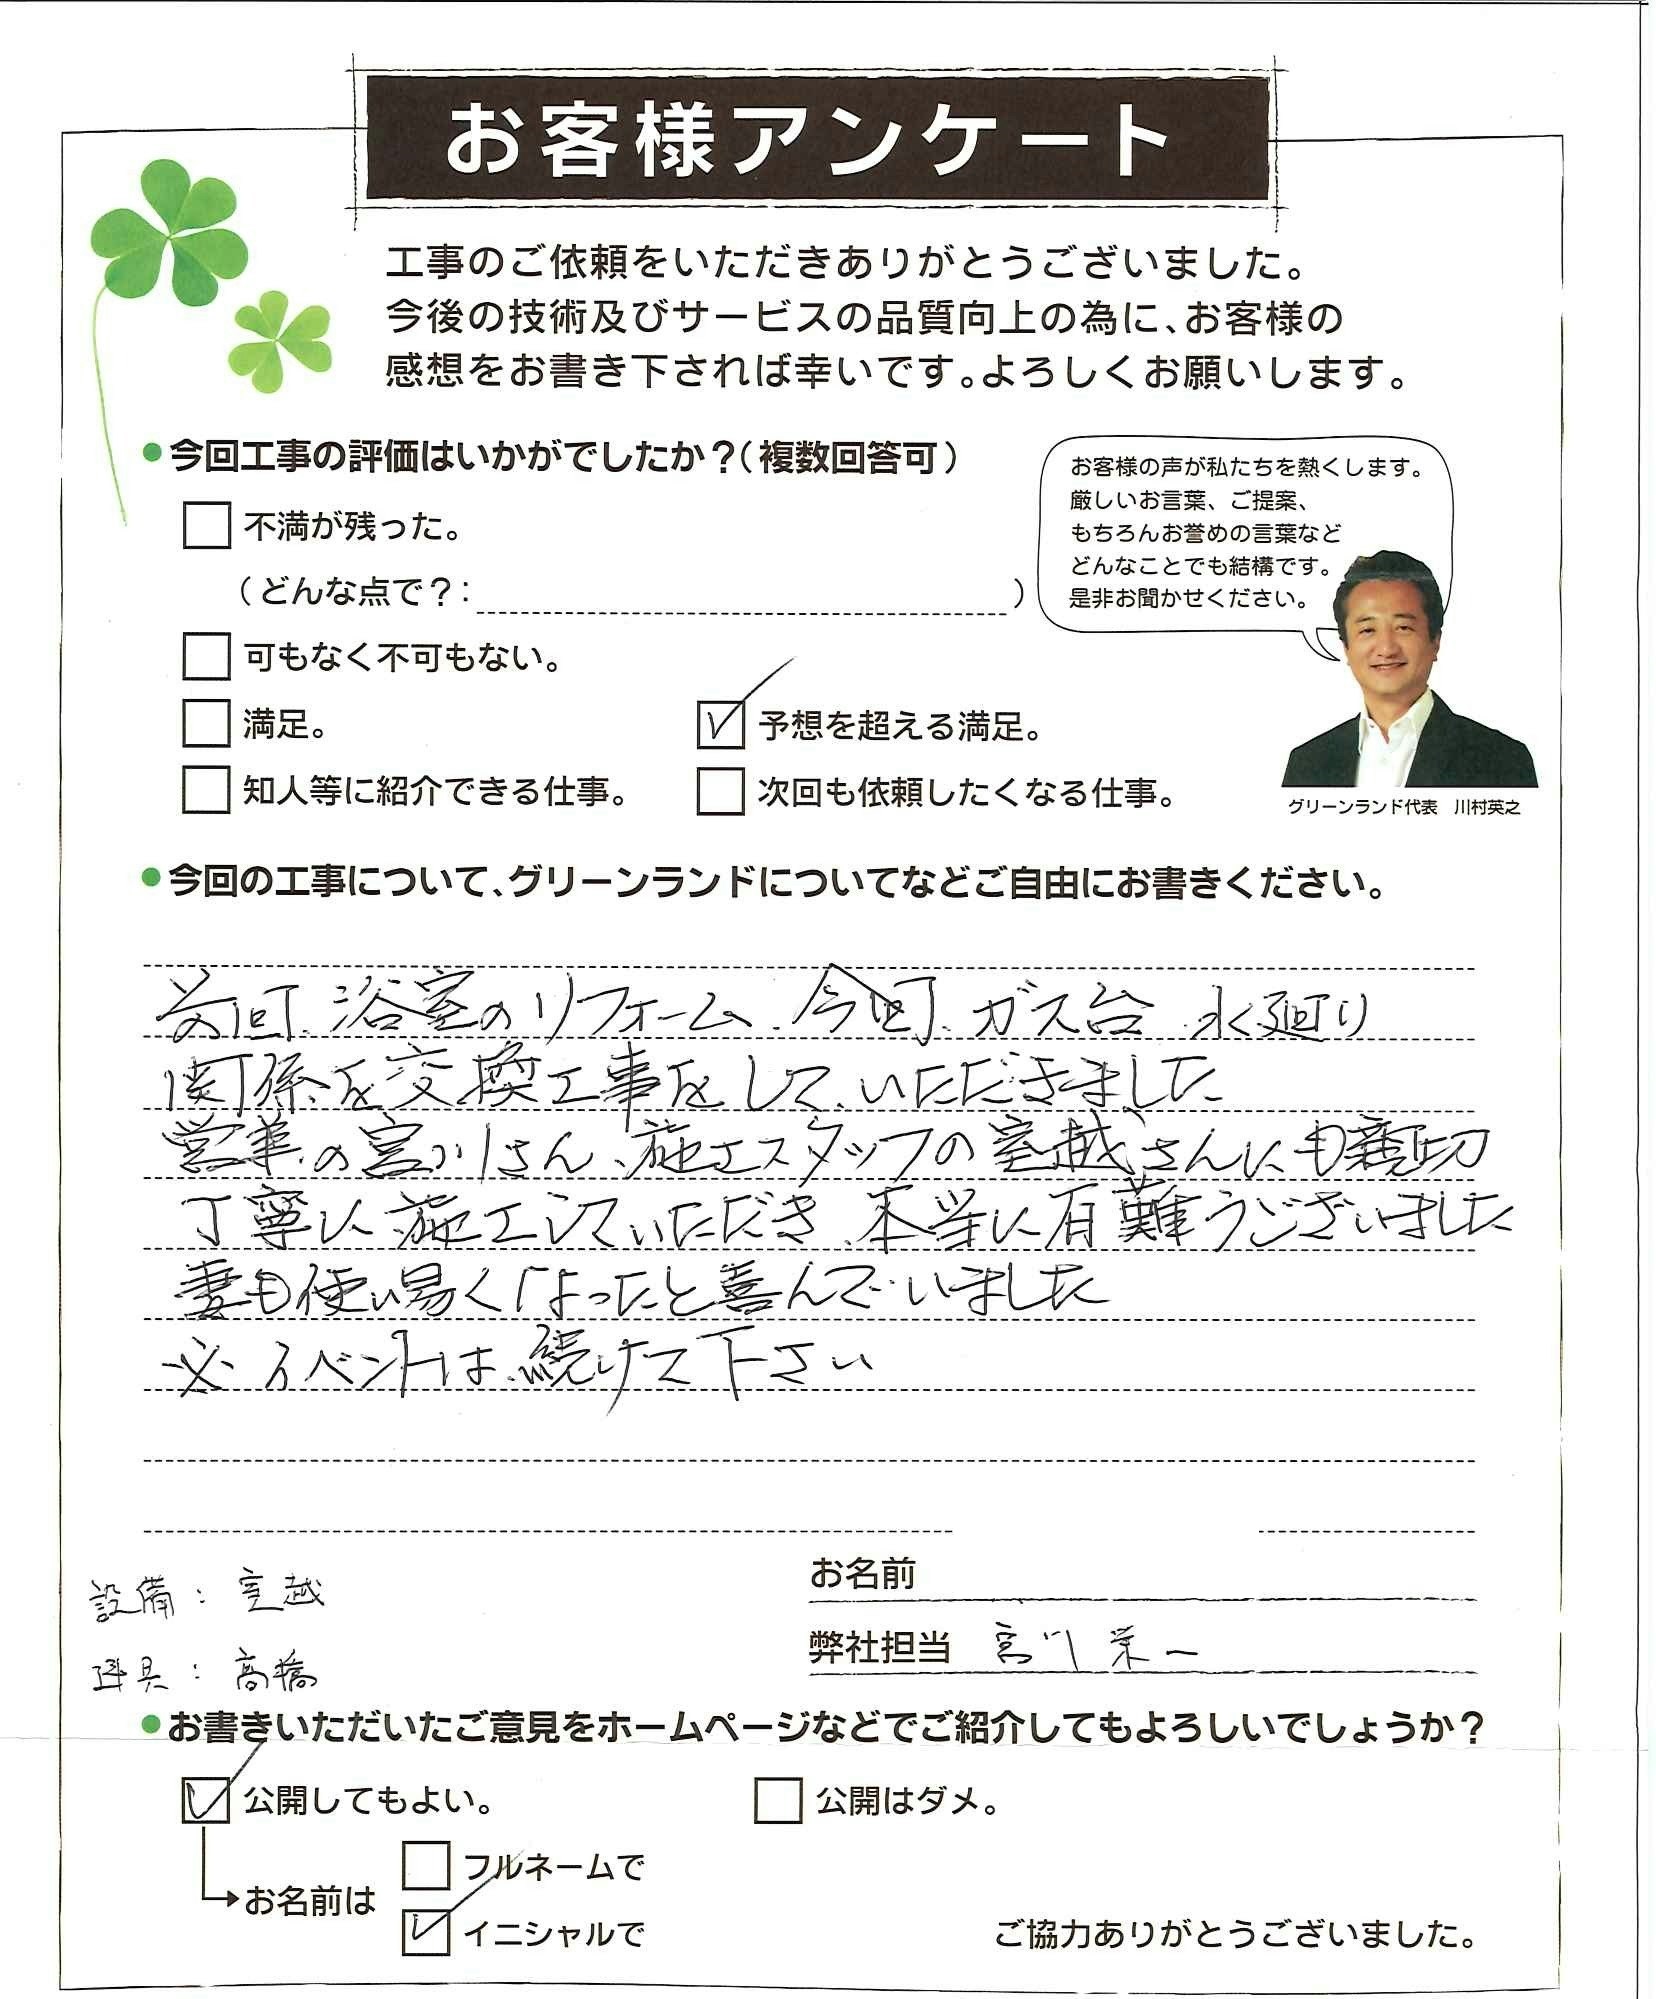 お客様アンケート
工事のご依頼をいただきありがとうございました。
今後の技術及びサービスの品質向上の為に、お客様の
感想をお書き下されば幸いです。よろしくお願いします。
●今回工事の評価はいかがでしたか？（複数回答可）
不満が残った。
（どんな点で？： ）
可もなく不可もない。
満足。
予想を超える満足。
知人等に紹介できる仕事。
次回も依頼したくなる仕事。
お客様の声が私たちを熱くします。
厳しいお言葉、ご提案、
もちろんお誉めの言葉など
どんなことでも結構です。
是非お聞かせください。
グリーンランド代表　川村英之
●今回の工事について、グリーンランドについてなどご自由にお書きください。
前回、浴室のリフォーム、今回、ガス台、水廻り
関係を交換工事をして、いただきました
営業の宮川さん、施工スタッフの室越さんにも親切
丁寧に施工していただき、本当に有難うございました
妻も使い易くなったと喜んでいました
※イベントは、続けて下さい
設備：室越
建具：高橋
お名前
弊社担当 宮川栄一
●お書きいただいたご意見をホームページなどでご紹介してもよろしいでしょうか？
公開してもよい。
公開はダメ。
お名前は
フルネームで
イニシャルで
ご協力ありがとうございました。